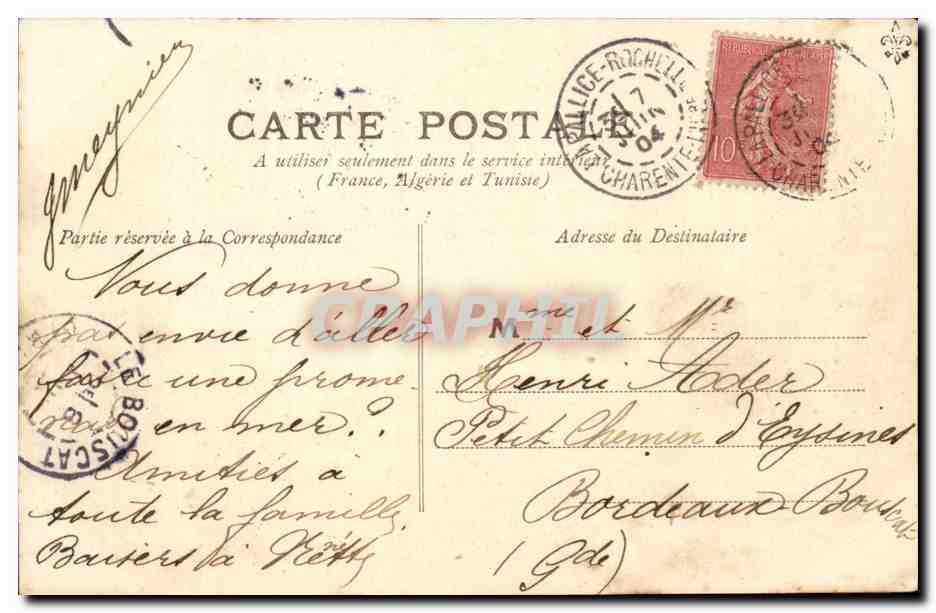 CARTE POSTALE
A utiliser seulement dans le service intérieur
(France, Algérie et Tunisie)
Partie réservée à la Correspondance
Adresse du Destinataire
LA PALLICE-ROCHELLE
7
JUIN
04
CHARENTE-INFRE
REPUBLIQUE
10
LA PALLICE
04
CHARENTE
Vous donne
pas envie d'aller
faire une prome
nade en mer??
Amitiés à
toute la famille,
Baisers à
LE BOUSCAT
CRAPHIL
Mme et Mr
Henri Ader
Petit Chemin d'Eysines
Bordeaux-Bouscat
(Gde)